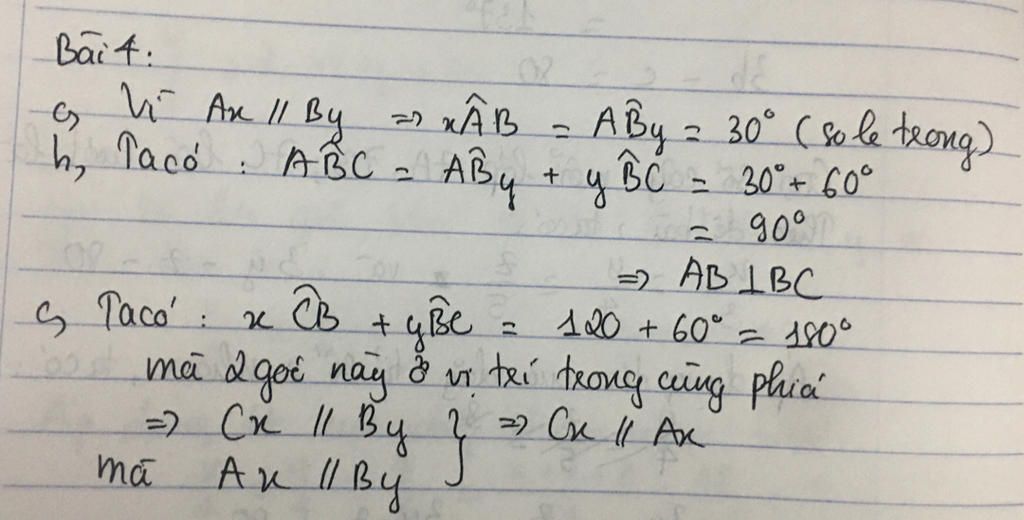 Bài 4:
a, Vì Ax // By => xÂB = AB̂y = 30° (so le trong)
b, Ta có : AB̂C = AB̂y + yB̂C = 30° + 60°
= 90°
=> AB ⊥ BC
c, Ta có : xĈB + yB̂C = 120 + 60° = 180°
mà 2 góc này ở vị trí trong cùng phía
=> Cx // By } => Cx // Ax
mà Ax // By